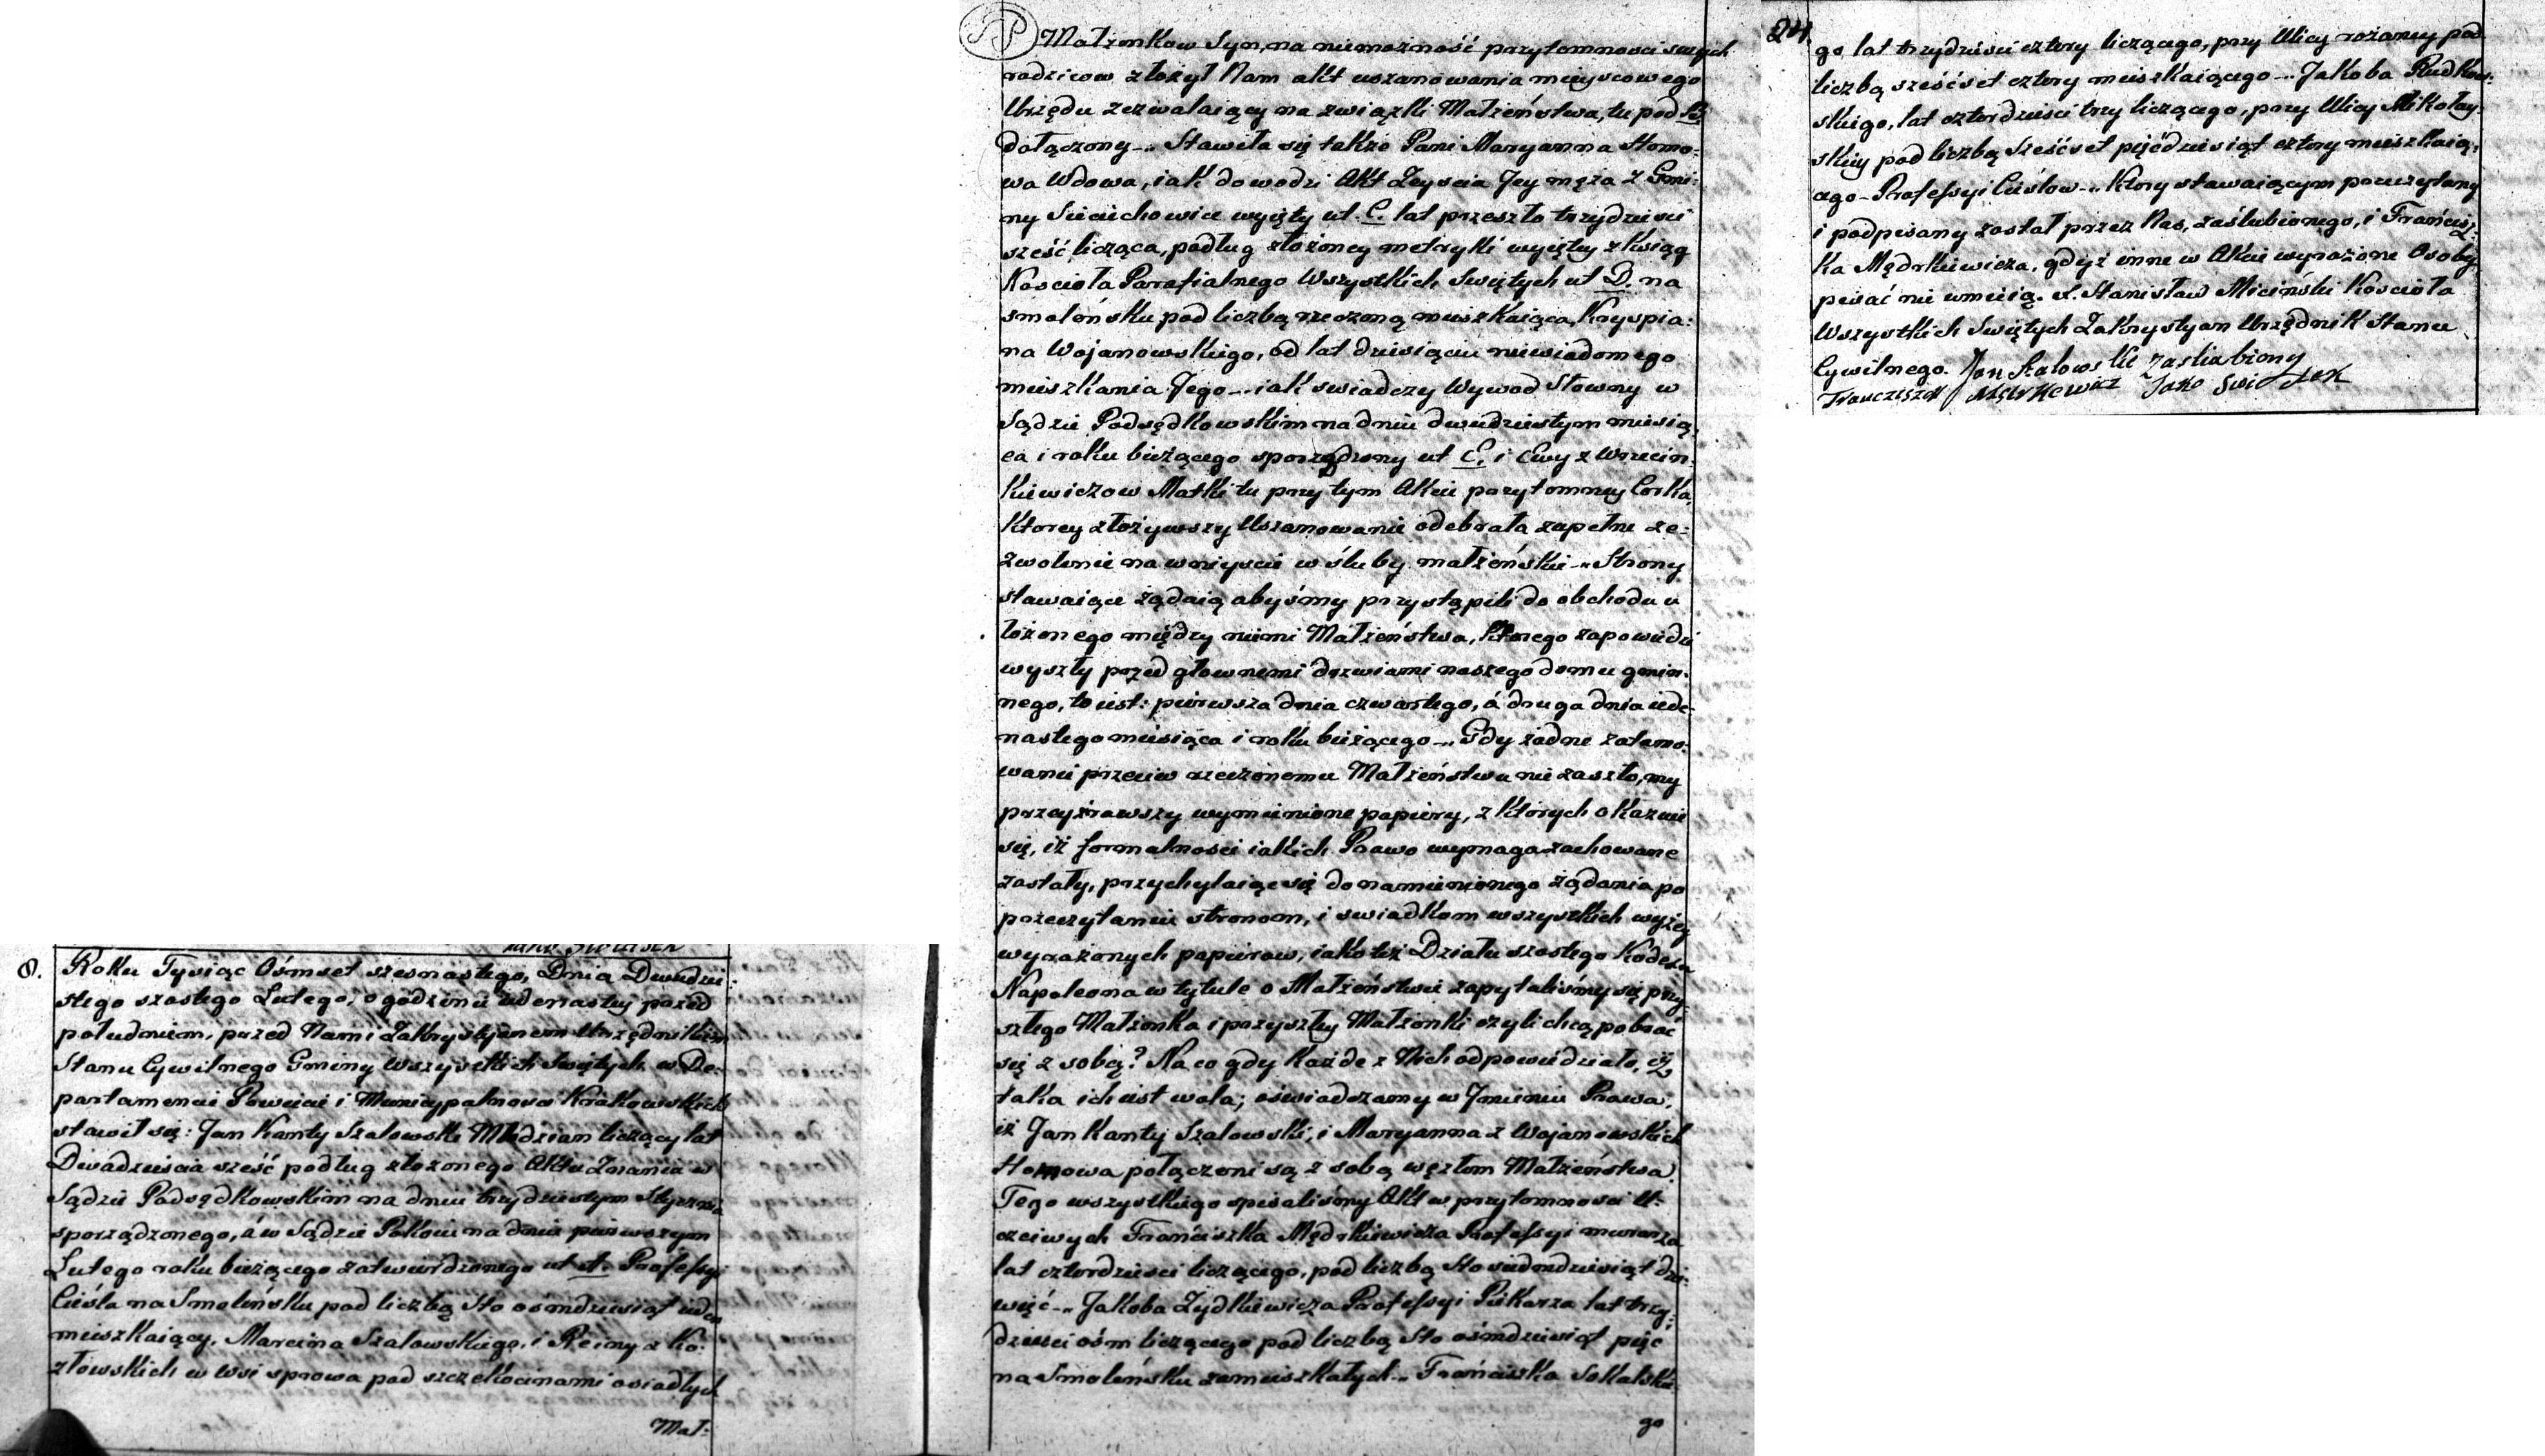 8. Roku Tysiąc Ośmset szesnastego, Dnia Dwudzie:
stego szostego Lutego, o godzinie iedenastey przed
południem, przed Nami Zakrystyanem Urzędnikiem
Stanu Cywilnego Gminy Wszystkich Swiętych w De:
partamencie Powiecie i Municypalnosci Krakowskich
stawił się: Jan Kanty Szalowski Młodzian liczący lat
Dwadzieścia sześć podług złożonego Aktu Znania w
Sądzie Podsędkowskim na dniu trzydziestym Stycznia
sporządzonego, á w Sądzie Pokoiu na dniu pierwszym
Lutego roku bieżącego zatwierdzonego ut A. Professyi
Cieśla na Smoleńsku pod liczbą Sto ośmdziesiąt ieden
mieszkaiący, Marcina Szalowskiego, i Reiny z Ko:
złowskich w wsi sprowa pod szczekocinami osiadłych
Mał:
Małżonkow Syn, na niemożność przytomnosci swych
rodzicow złożył Nam akt uszanowania mieyscowego
Urzędu zezwalaiący na związki Małżeństwa, tu pod B.
dołączony _ Stawiła się także Pani Maryanna Homo:
wa Wdowa, iak dowodzi Akt Zeyscia Jey męża z Gmi:
ny Sieciechowice wyięty ut. C. lat przeszło trzydziesci
sześć licząca, podług złożoney metryki wyiętey z Ksiąg
Kościoła Parafialnego Wszystkich Swiętych ut D. na
smoleńsku pod liczbą rzeczoną mieszkaiąca, Kryspia:
na Wojanowskiego, od lat dziesięciu niewiadomego
mieszkania Jego _ iak swiadczy Wywod Słowny w
Sądzie Podsędkowskim na dniu dwudziestym miesią
ca i roku bieżącego sporządzony ut E. i Ewy z Wrzecin
kiewiczow Matki tu przy tym Akcie przytomney Corka,
Ktorey złożywszy Uszanowanie odebrała zupełne ze:
zwolenie na wniyscie w śluby małżeńskie _ Strony
stawaiące żądaią abyśmy przystąpili do obchodu u
łożonego między niemi Małżeństwa, Ktorego zapowiedzi
wyszły przed głownemi drzwiami naszego domu gmin:
nego, to iest: pierwsza dnia czwartego, á druga dnia iede
nastego miesiąca i roku bieżącego _ Gdy żadne zatamo:
wanie przeciw rzeczonemu Małżeństwu nie zaszło, my
przeyżrawszy wymienione papiery, z Ktorych okazuie
się, iż formalności iakich Prawo wymaga zachowane
zostały, przychylaiąc się do namienionego żądania po
przeczytaniu stronom, i swiadkom wszystkich wyżey
wyrażonych papierow, iako też Działu szostego Kodexu
Napoleona w tytule o Małżeństwie zapytaliśmy się przy
szłego Małżonka i przyszłey Małżonki czyli chcą pobrac
się z sobą? Na co gdy każde z Nich odpowiedziało, iż
taka ich iest wola; oświadczamy w Jmieniu Prawa,
iż Jan Kanty Szalowski, i Maryanna z Wojanowskich
Homowa połączeni są z sobą węzłem Małżeństwa.
Tego wszystkiego spisaliśmy Akt w przytomnosci U:
czciwych Franciszka Mędrkiewicza Professyi murarza
lat czterdziesci liczącego, pod liczbą Sto siedmdziesiąt dzie:
więć _ Jakoba Zydkiewicza Professyi Piekarza lat trzy:
dzieści ośm liczącego pod liczbą Sto ośmdziesiąt pięc
na Smoleńsku zamieszkałych _ Franciszka Sokalskie
go
24.
go lat trzydziesci cztery liczącego, przy Ulicy rożanney pod
liczbą sześćset cztery mieszkaiącego _ Jakoba Rudkow:
skiego, lat czterdziesci trzy liczącego, przy Ulicy Mikołay
skiey pod liczbą Sześćset pięćdziesiąt cztery mieszkaią:
cego _ Professyi Cieślow _ Ktory stawaiącym przeczytany
i podpisany został przez Nas, zaślubionego, i Francisz:
ka Mędrkiewicza, gdyż inne w Akcie wyrażone Osoby
pisać nie umieią. X. Stanisław Miciński Kościoła
Wszystkich Swiętych Zakrystyan Urzędnik Stanu
Cywilnego. Jan Salowski Zasliubiony
Franciszek Mędrkewicz Jako Swiadek